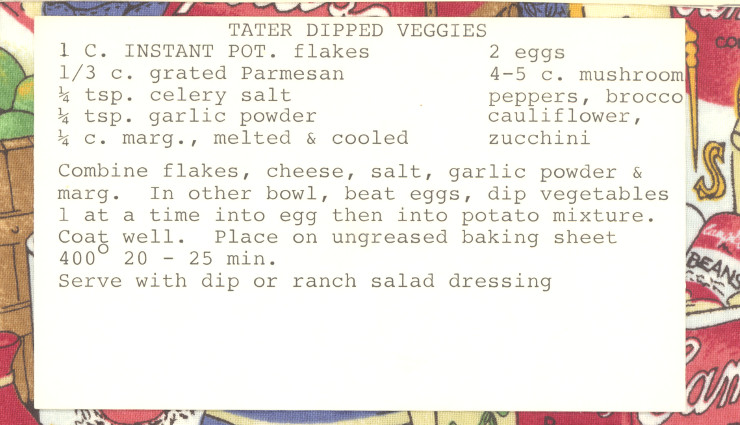 TATER DIPPED VEGGIES
1 C. INSTANT POT. flakes 2 eggs
1/3 c. grated Parmesan 4-5 c. mushroom
¼ tsp. celery salt peppers, brocco
¼ tsp. garlic powder cauliflower,
¼ c. marg., melted & cooled zucchini
Combine flakes, cheese, salt, garlic powder &
marg. In other bowl, beat eggs, dip vegetables
1 at a time into egg then into potato mixture.
Coat well. Place on ungreased baking sheet
400° 20 - 25 min.
Serve with dip or ranch salad dressing
BEANS